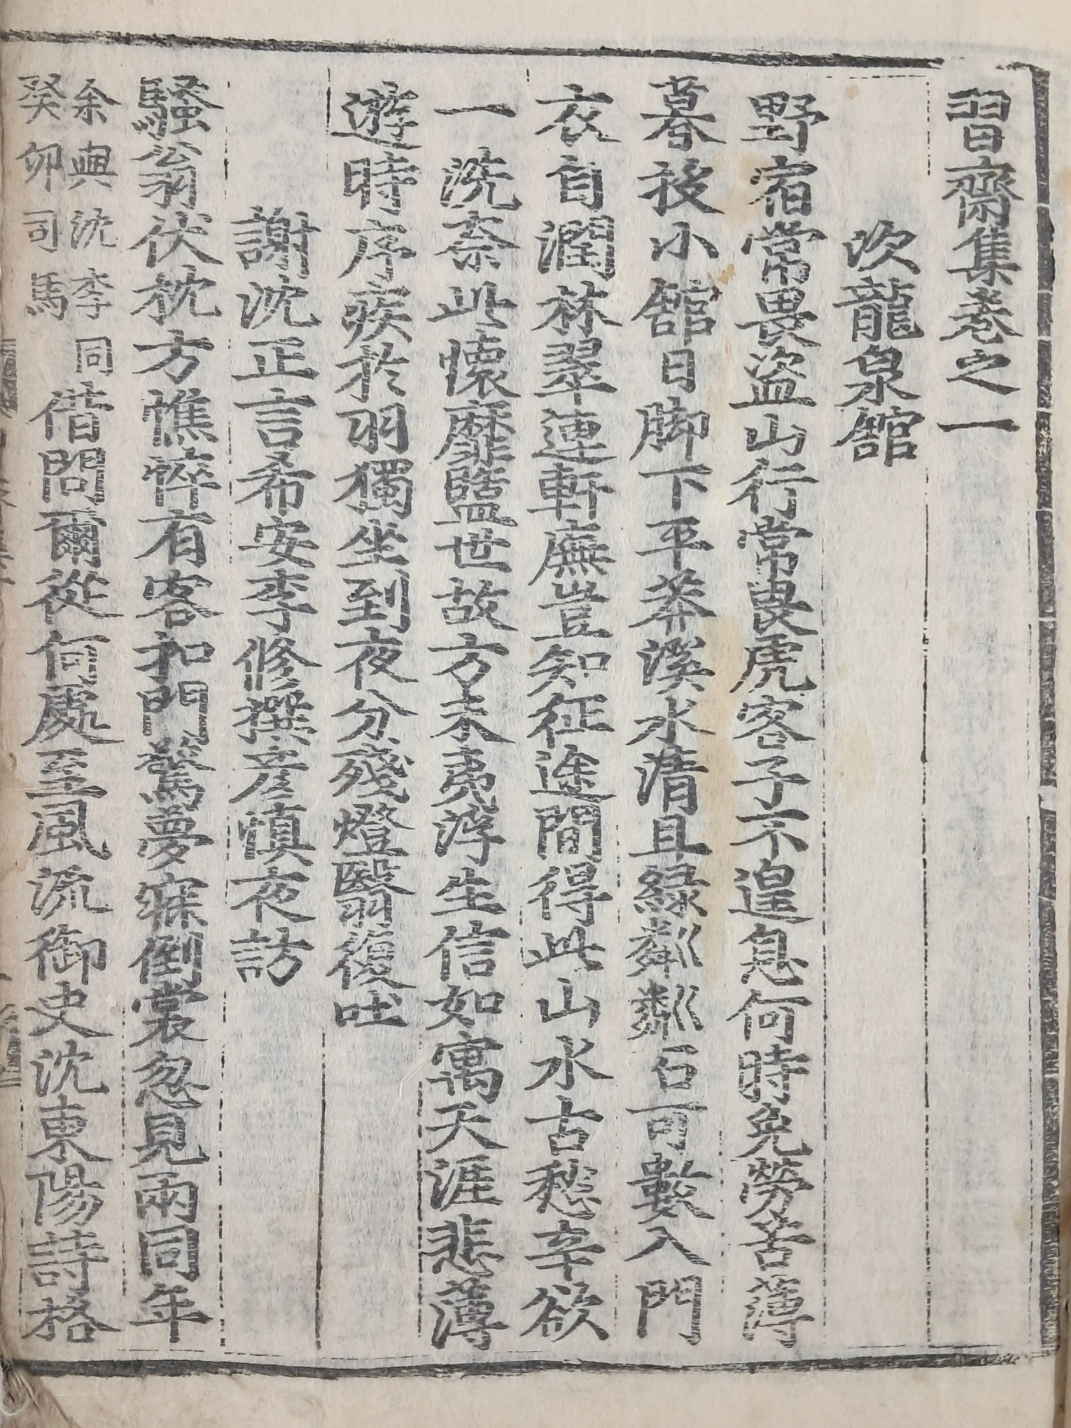 習齋集卷之一
次龍泉舘
野宿常畏盜山行常畏虎客子不遑息何時免勞苦薄
暮投小舘日脚下平莽溪水清且綠粼粼石可數入門
衣自潤林翠連軒廡豈知征途間得此山水古愁辛欲
一洗奈此懷靡盬世故方未夷浮生信如寓天涯悲薄
遊時序疾於羽獨坐到夜分殘燈翳復吐
謝沈正言希安李修撰彦愼夜訪
騷翁伏枕方憔悴有客扣門驚夢寐倒裳忽見兩同年
余與沈李同
癸卯司馬
借問爾從何處至風流御史沈東陽詩格